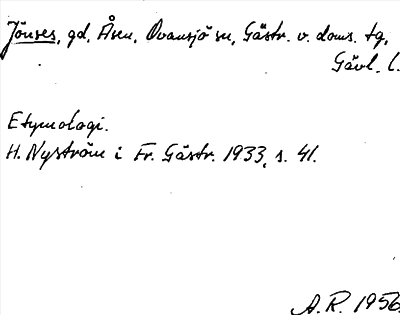 Jönses, gd, Åsen, Ovansjö sn, Gästr. v. doms. tg,
Gävl. l.
Etymologi.
H. Nyström i Fr. Gästr. 1933, s. 41.
A. R. 1956.